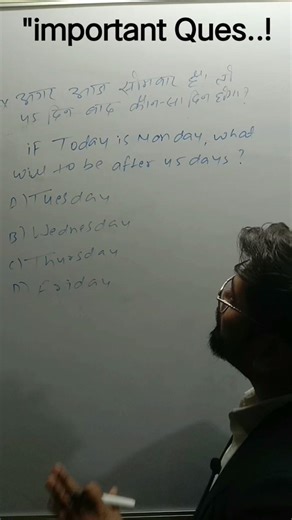 "important Ques..!
अगर आज सोमवार है, तो
45 दिन बाद कौन-सा दिन होगा?
if Today is Monday, what
will to be after 45 days?
A) Tuesday
B) Wednesday
C) Thursday
D) Friday